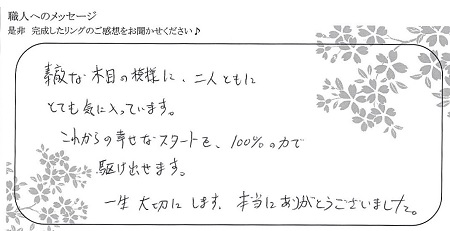 職人へのメッセージ
是非 完成したリングのご感想をお聞かせください♪
素敵な木目の模様に、二人ともに
とても気に入っています。
これからの幸せなスタートを、100%の力で
駆け出せます。
一生 大切にします。本当にありがとうございました。